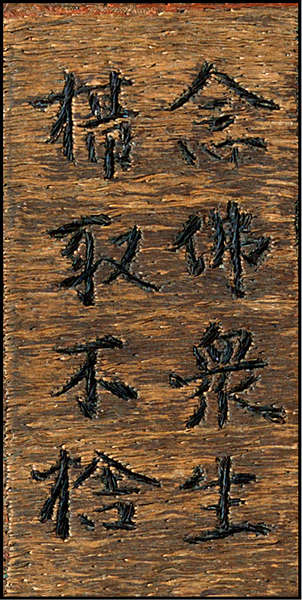 念佛衆生
摂取不捨